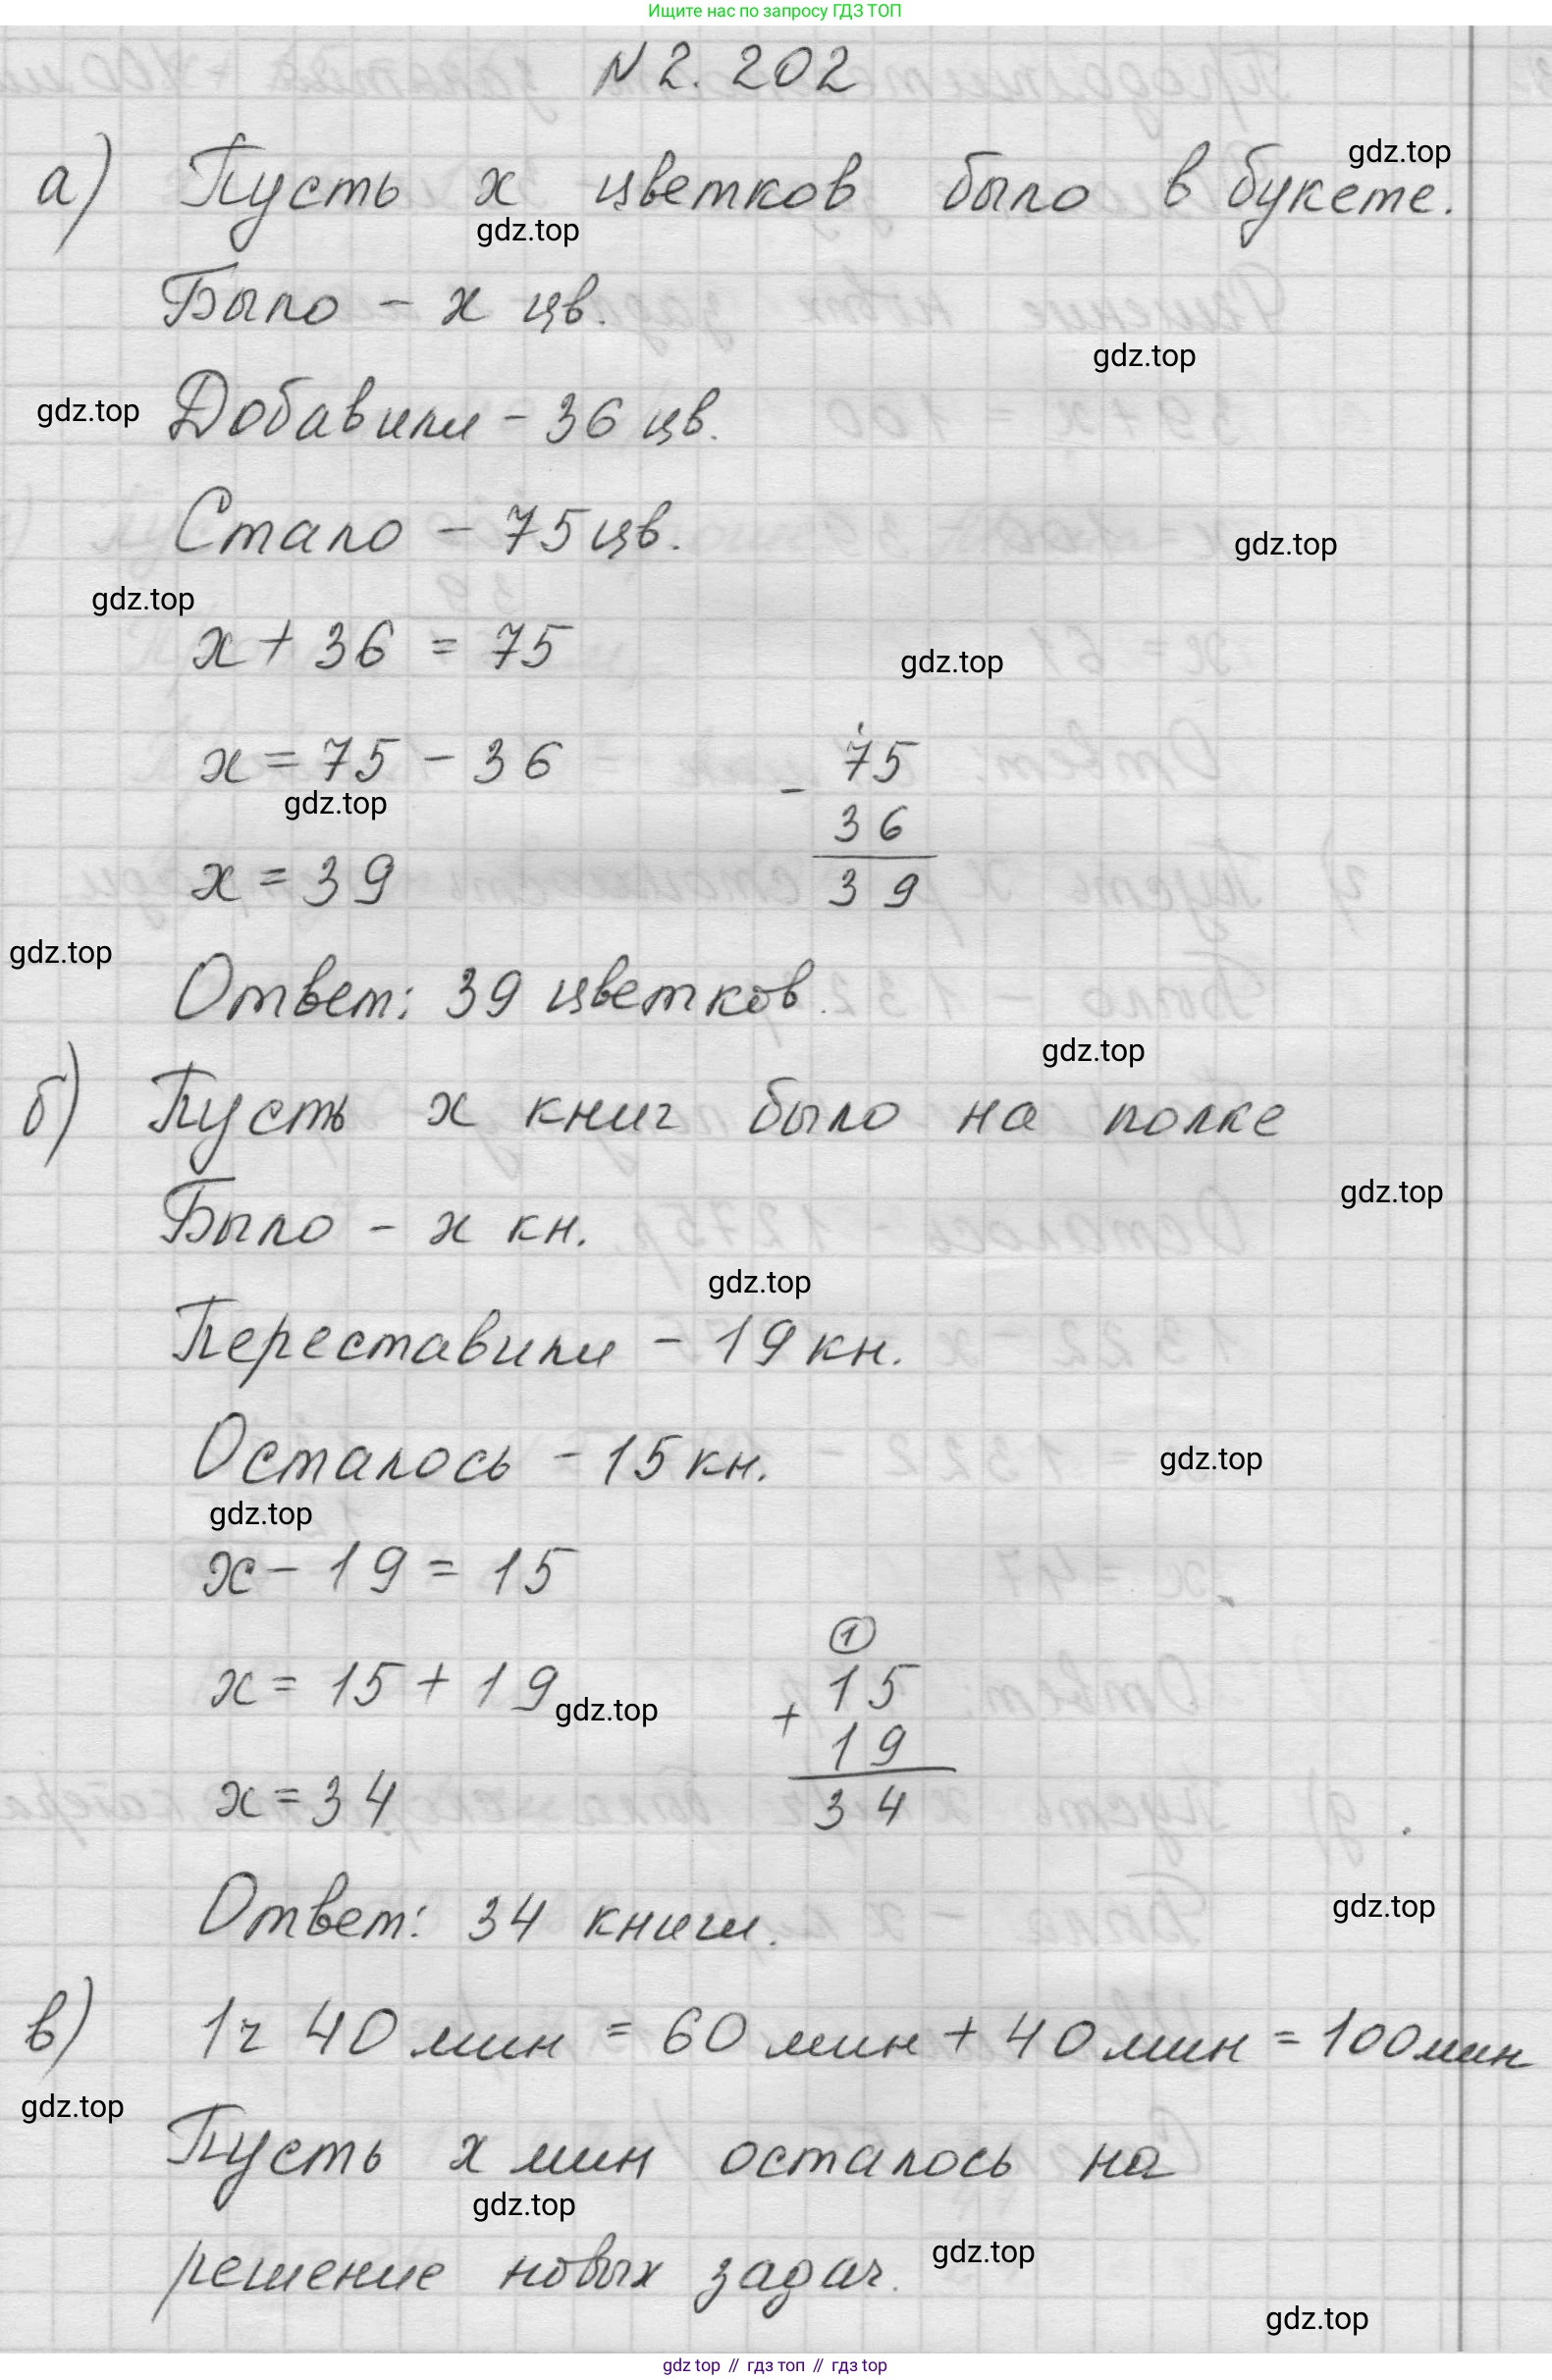 Ищите нас по запросу ГДЗ ТОП
N 2. 202
а) Пусть x цветков было в букете.
gdz.top
gdz.top
Было - x цв.
gdz.top
gdz.top
Добавили - 36 цв.
Стало - 75 цв.
gdz.top
gdz.top
x + 36 = 75
gdz.top
x = 75 - 36
75
-
36
39
gdz.top
x = 39
gdz.top
Ответ: 39 цветков.
gdz.top
б) Пусть x книг было на полке
gdz.top
Было - x кн.
gdz.top
Переставили - 19 кн.
Осталось - 15 кн.
gdz.top
gdz.top
x - 19 = 15
x = 15 + 19
gdz.top
1
15
+
19
34
x = 34
Ответ: 34 книги.
gdz.top
в) 1 ч 40 мин = 60 мин + 40 мин = 100 мин
gdz.top
Пусть x мин осталось на
gdz.top
решение новых задач.
gdz.top
gdz.top
gdz top // гдз топ // гдз top